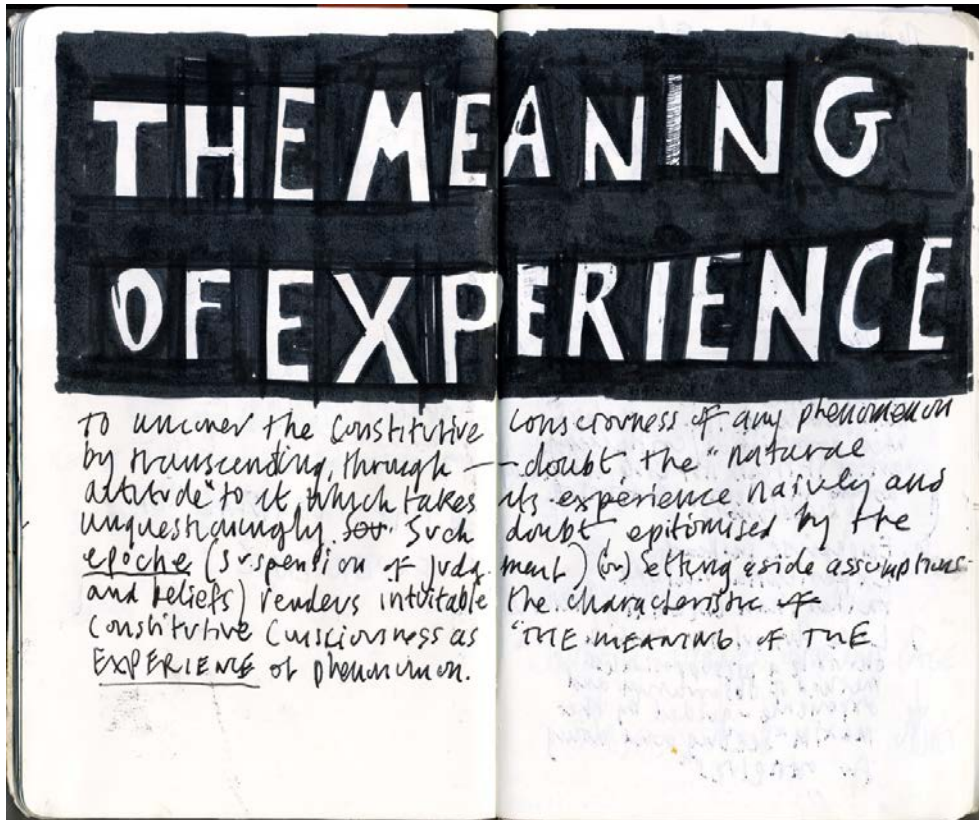 THE MEANING
OF EXPERIENCE
To uncover the constitutive consciousness of any phenomenon
by transcending, through — doubt the "natural
attitude" to it which takes its experience naively and
unquestioningly. Such doubt, epitomised by the
epoche (suspension of judgment) (or) setting aside assumptions
and beliefs) renders intuitable the characteristic of
constitutive consciousness as "THE MEANING OF THE
EXPERIENCE of phenomenon.